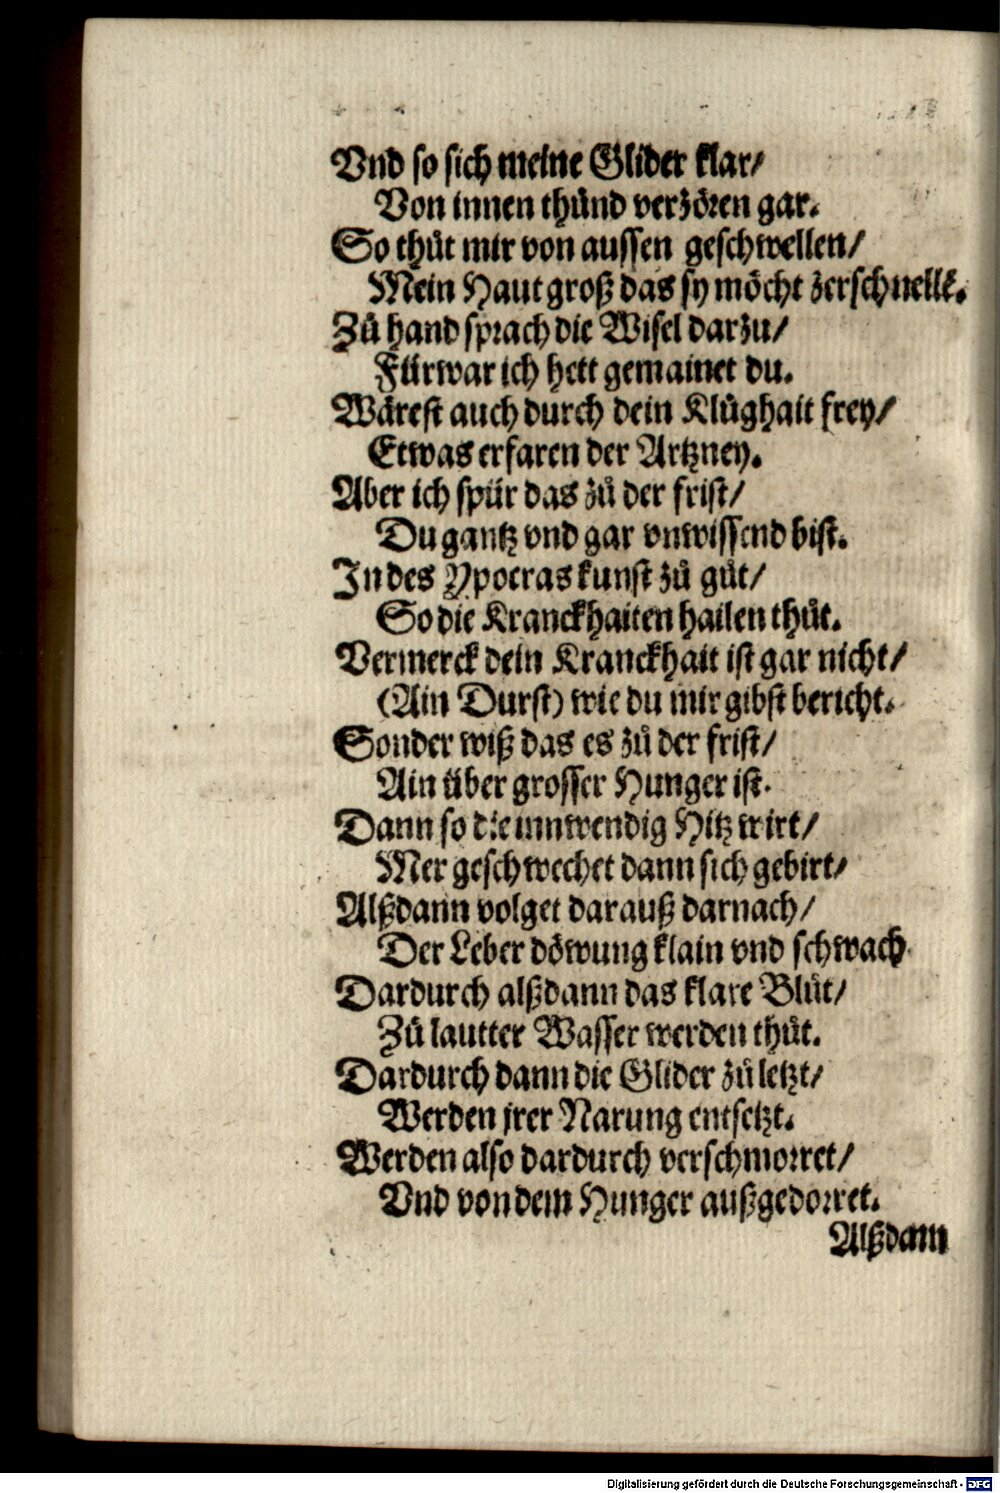 Vnd so sich meine Glider klar/
Von innen thuͦnd verzoͤren gar.
So thuͦt mir von aussen geschwellen/
Mein Haut groß das sy moͤcht zerschnellē.
Zuͦ hand sprach die Wisel darzu/
Fürwar ich hett gemainet du.
Waͤrest auch durch dein Kluͦghait frey/
Etwas erfaren der Artzney.
Aber ich spür das zuͦ der frist/
Du gantz vnd gar vnwissend bist.
In des Ypocras kunst zuͦ guͦt/
So die Kranckhaiten hailen thuͦt.
Vermerck dein Kranckhait ist gar nicht/
(Ain Durst) wie du mir gibst bericht.
Sonder wiß das es zuͦ der frist/
Ain über grosser Hunger ist.
Dann so die innwendig Hitz wirt/
Mer geschwechet dann sich gebirt/
Alßdann volget darauß darnach/
Der Leber doͤwung klain vnd schwach.
Dardurch alßdann das klare Bluͦt/
Zuͦ lautter Wasser werden thuͦt.
Dardurch dann die Glider zuͦ letzt/
Werden jrer Narung entsetzt.
Werden also dardurch verschmorret/
Vnd von dem Hunger außgedorret.
Alßdann
Digitalisierung gefördert durch die Deutsche Forschungsgemeinschaft - DFG